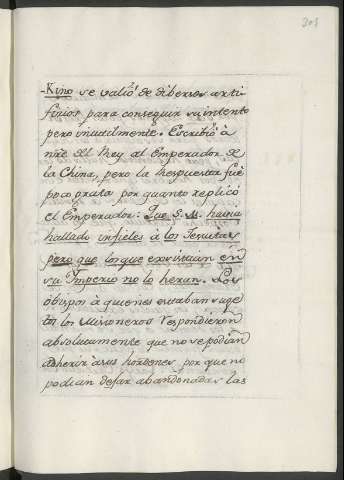 301
-Kino se valió de diversos arti-
ficios para conseguir su intento
pero inutilmente. Escribió à
nñe del Rey al Emperador de
la China, pero la Respuesta fué
poco grata por quanto replicó
el Emperador: Que S. M. havia
hallado infieles à los Jesuitas
pero que los que existian en
su Imperio no lo heran. Los
obispos à quienes estaban suge
tos los Misioneros respondieron
absolutamente que no se podian
adherir à sus hordenes por que no
podian dejar abandonadas las